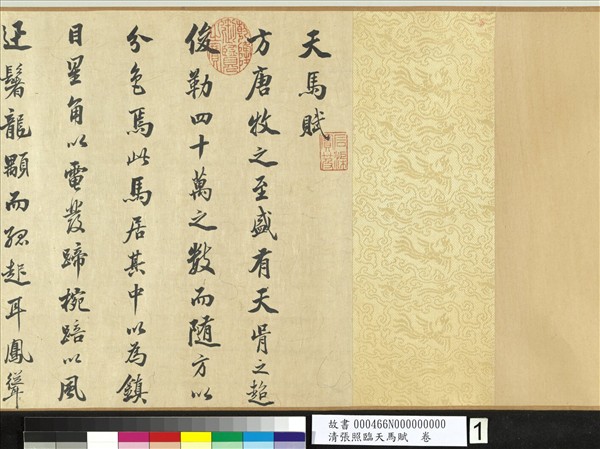 天馬賦
方唐牧之至盛有天骨之超
俊勒四十萬之數而随方以
分色焉此馬居其中以為鎮
目星角以電發蹄椀踣以風
迋鬐龍顒而孤起耳鳳聳
故書 000466N000000000
清張照臨天馬賦 卷
1